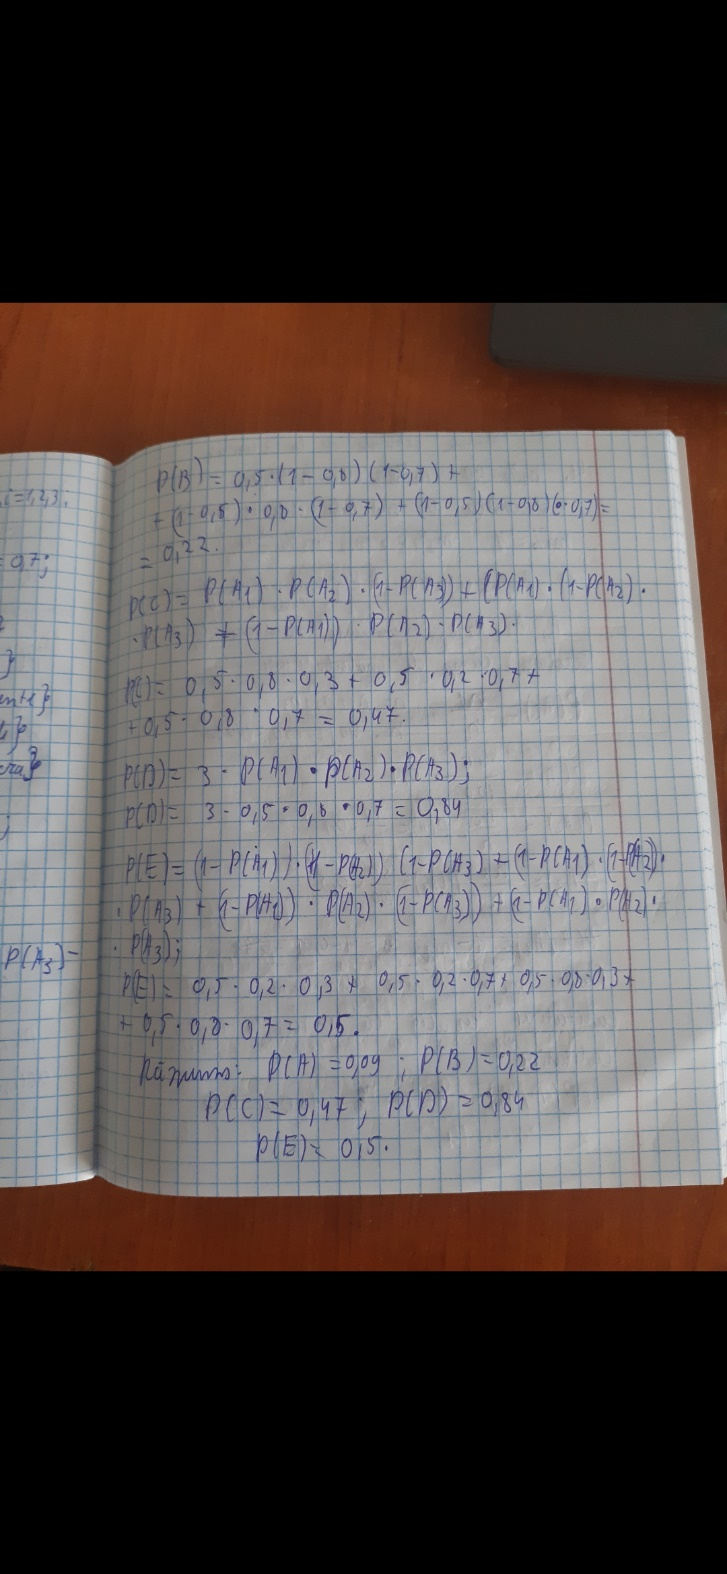 i=1,2,3;
= 0,7;
P(A₃)=
P(B) = 0,5·(1-0,8)(1-0,7) +
+(1-0,5)·0,8·(1-0,7) +(1-0,5)(1-0,8)(0,7)=
= 0,22.
P(C)= P(A₁)·P(A₂)·(1-P(A₃)) + (P(A₁)·(1-P(A₂)·
·P(A₃) + (1-P(A₁))·P(A₂)·P(A₃).
P(C)= 0,5·0,8·0,3 + 0,5·0,2·0,7+
+0,5·0,8·0,7 = 0,47.
P(D)= 3·P(A₁)·P(A₂)·P(A₃);
P(D)= 3·0,5·0,8·0,7 = 0,84
P(E)=(1-P(A₁))·(1-P(A₂))(1-P(A₃) +(1-P(A₁)·(1-P(A₂)·
·P(A₃) + (1-P(A₁))·P(A₂)·(1-P(A₃)) +(1-P(A₁)·P(A₂)·
·P(A₃);
P(E)= 0,5·0,2·0,3 + 0,5·0,2·0,7+ 0,5·0,8·0,3+
+ 0,5·0,8·0,7= 0,5.
P(A) =0,09 ; P(B)=0,22
P(C)= 0,47; P(D)=0,84
P(E)= 0,5.